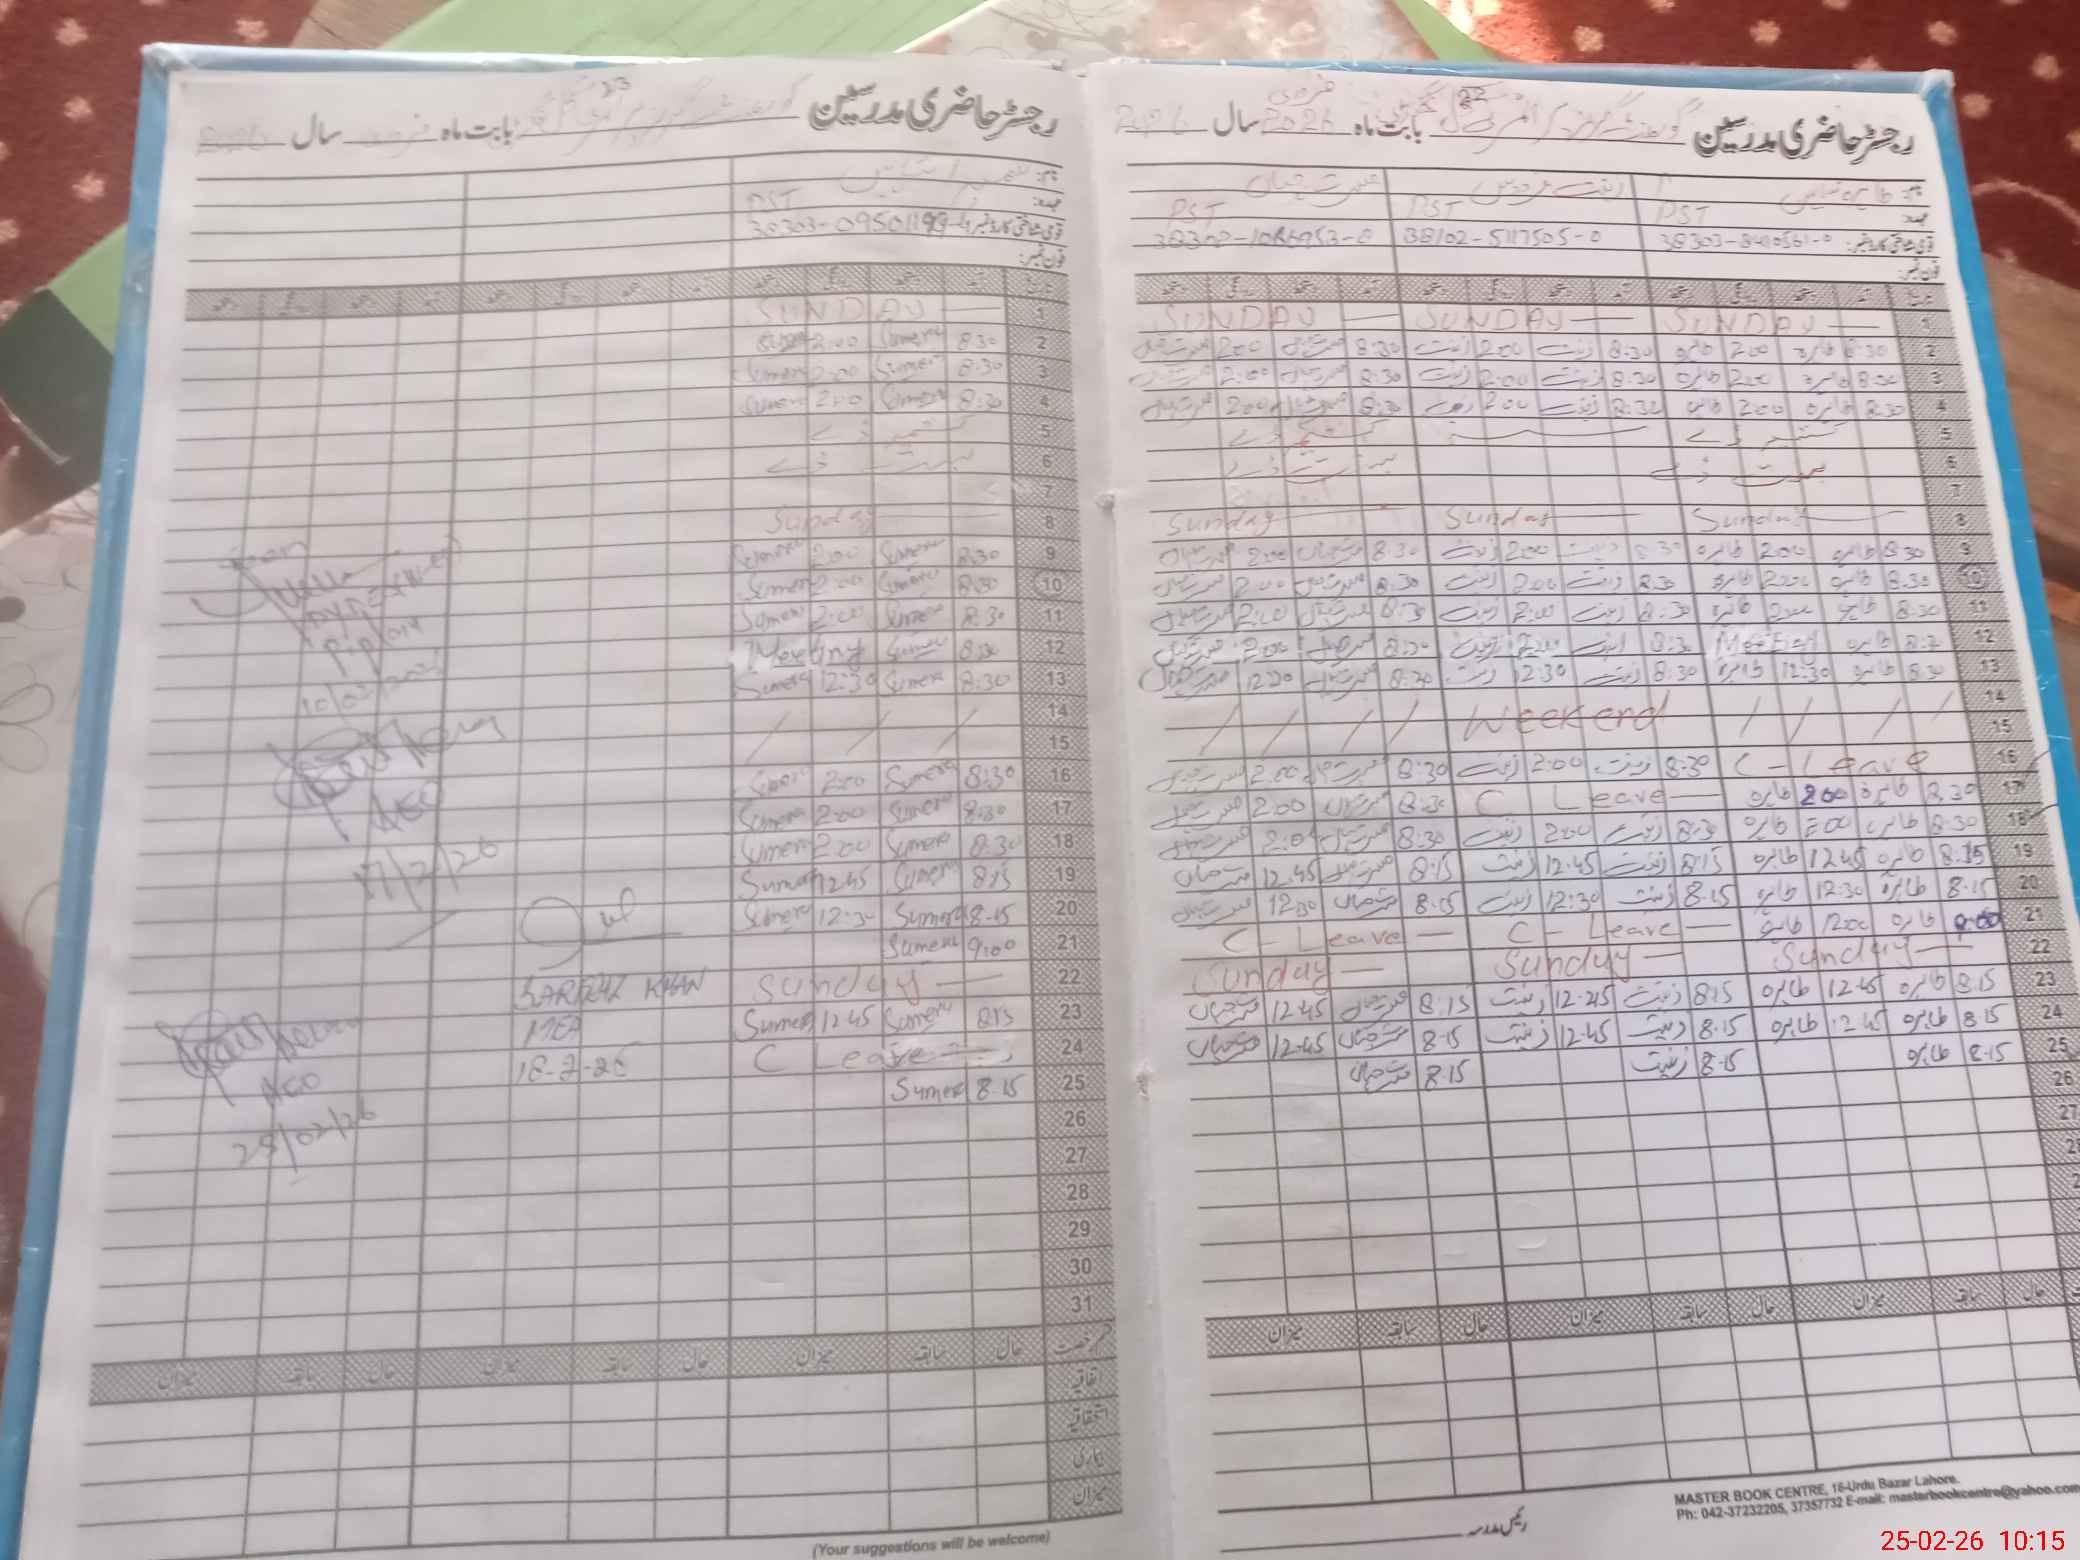 رجسٹر حاضری مدرسین گورنمنٹ گرلز پرائمری سکول بابت ماہ فروری 2026 سال 2026
نام: طاہرہ زینت فردوس مسرت جہاں
عہدہ: PST PST PST
قومی شناختی کارڈ نمبر: 38102-5117505-0
فون نمبر:
1 SUNDAY — SUNDAY — SUNDAY —
2 8:30 طاہرہ 2:00 طاہرہ 8:30 زینت 2:00 زینت 8:30 مسرت جہاں 2:00 مسرت جہاں
3 8:30 طاہرہ 2:00 طاہرہ 8:30 زینت 2:00 زینت 8:30 مسرت جہاں 2:00 مسرت جہاں
4 8:30 طاہرہ 2:00 طاہرہ 8:30 زینت 2:00 زینت 8:30 مسرت جہاں 2:00 مسرت جہاں
5 کشمیر ڈے کشمیر ڈے
6 بسنت ڈے بسنت ڈے
7
8 Sunday Sunday Sunday
9 8:30 طاہرہ 2:00 طاہرہ 8:30 زینت 2:00 زینت 8:30 مسرت جہاں 2:00 مسرت جہاں
10 8:30 طاہرہ 2:00 طاہرہ 8:30 زینت 2:00 زینت 8:30 مسرت جہاں 2:00 مسرت جہاں
11 8:30 طاہرہ 2:00 طاہرہ 8:30 زینت 2:00 زینت 8:30 مسرت جہاں 2:00 مسرت جہاں
12 طاہرہ Meeting 8:30 زینت 2:00 زینت 8:30 مسرت جہاں 2:00 مسرت جہاں
13 8:30 طاہرہ 12:30 طاہرہ 8:30 زینت 12:30 زینت 8:30 مسرت جہاں 12:30 مسرت جہاں
14 / / / / Weekend / / / /
15
16 C - Leave 8:30 زینت 2:00 زینت 8:30 مسرت جہاں 2:00 مسرت جہاں
17 8:30 طاہرہ 2:00 طاہرہ C Leave — 8:30 مسرت جہاں 2:00 مسرت جہاں
18 8:30 طاہرہ 2:00 طاہرہ 8:30 زینت 2:00 زینت 8:30 مسرت جہاں 2:00 مسرت جہاں
19 8:15 طاہرہ 12:45 طاہرہ 8:15 زینت 12:45 زینت 8:15 مسرت جہاں 12:45 مسرت جہاں
20 8.15 طاہرہ 12:30 طاہرہ 8.15 زینت 12:30 زینت 8.15 مسرت جہاں 12:30 مسرت جہاں
21 9:00 طاہرہ 12:00 طاہرہ C - Leave — C - Leave —
22 Sunday — Sunday — Sunday —
23 8.15 طاہرہ 12.45 طاہرہ 8.15 زینت 12.45 زینت 8.15 مسرت جہاں 12.45 مسرت جہاں
24 8.15 طاہرہ 12.45 طاہرہ 8.15 زینت 12.45 زینت 8.15 مسرت جہاں 12.45 مسرت جہاں
25 8.15 طاہرہ 8.15 زینت 8.15 مسرت جہاں
26
27
حال سابقہ میزان حال سابقہ میزان حال سابقہ میزان
رئیس مدرسہ
MASTER BOOK CENTRE, 18-Urdu Bazar Lahore.
Ph: 042-37232205, 37357732 E-mail: masterbookcentre@yahoo.com
رجسٹر حاضری مدرسین گورنمنٹ گرلز پرائمری بابت ماہ فروری سال 2026
نام: سمیرا
عہدہ: PST
قومی شناختی کارڈ نمبر
فون نمبر:
1 SUNDAY —
2 8:30 Sumera 2:00
3 8:30 Sumera 2:00 Sumera
4 8:30 Sumera 2:00 Sumera
5 کشمیر ڈے
6 بسنت ڈے
7
8 Sunday
9 8:30 Sumera 2:00 Sumera
10 8:30 Sumera 2:00 Sumera
11 8:30 Sumera 2:00 Sumera
12 8:30 Sumera Meeting
13 8:30 Sumera 12:30 Sumera
14 / / /
15
16 8:30 Sumera 2:00 Sumera
17 8:30 Sumera 2:00 Sumera
18 8:30 Sumera 2:00 Sumera
19 8:15 Sumera 12:45 Sumera
20 8.15 Sumera 12:30 Sumera
21 9:00 Sumera
22 Sunday —
23 8:15 Sumera 12:45 Sumera
24 C Leave
25 8.15 Sumera
26
27
28
29
30
31
AEO
17/2/26
KHAN
MEA
18-2-26
AEO
25/02/26
رخصت حال سابقہ میزان حال سابقہ میزان حال سابقہ میزان
اتفاقیہ
استحقاقیہ
بیماری
میزان
(Your suggestions will be welcome)
25-02-26 10:15